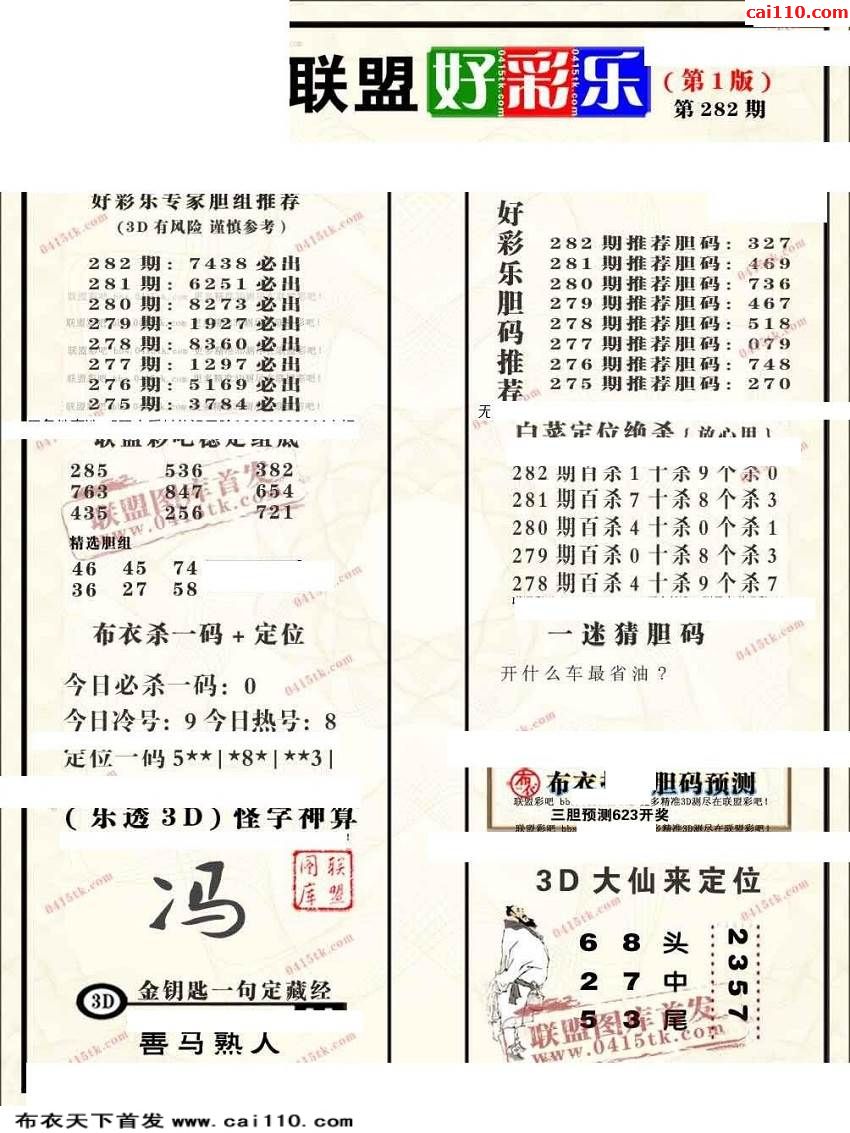 cai110.com
联盟好彩乐
(第1版)
第282期
好彩乐专家胆组推荐
(3D有风险 谨慎参考)
282期: 7438必出
281期: 6251必出
280期: 8273必出
279期: 1927必出
278期: 8360必出
277期: 1297必出
276期: 5169必出
275期: 3784必出
联盟彩吧稳定组底
285 536 382
763 847 654
435 256 721
精选胆组
46 45 74
36 27 58
布衣杀一码+定位
今日必杀一码: 0
今日冷号: 9 今日热号: 8
定位一码5**|*8*|**3|
(乐透3D)怪字神算
冯
联盟图库
3D 金钥匙一句定藏经
善马熟人
好彩乐胆码推荐
282期推荐胆码: 327
281期推荐胆码: 469
280期推荐胆码: 736
279期推荐胆码: 467
278期推荐胆码: 518
277期推荐胆码: 079
276期推荐胆码: 748
275期推荐胆码: 270
无
白菜定位绝杀{放心用}
282期百杀1十杀9个杀0
281期百杀7十杀8个杀3
280期百杀4十杀0个杀1
279期百杀0十杀8个杀3
278期百杀4十杀9个杀7
一迷猜胆码
开什么车最省油?
布衣 胆码预测
联盟彩吧 bb 多精准3D测尽在联盟彩吧!
三胆预测623开奖
3D大仙来定位
6 8 头
2 7 中
5 3 尾
2357
联盟图库首发
www.0415tk.com
布衣天下首发 www.cai110.com